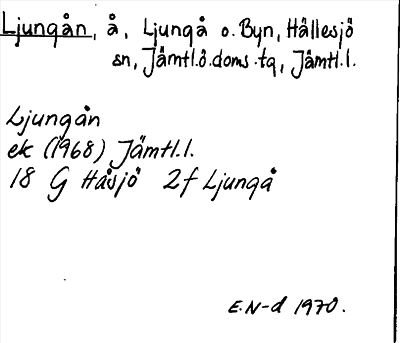 Ljungån, å, Ljungå o. Byn, Hällesjö
sn, Jämtl.ö.doms.tq, Jämtl.l.
Ljungån
ek (1968) Jämtl.l.
18 G Håsjö 2f Ljungå
E.N-d 1970.